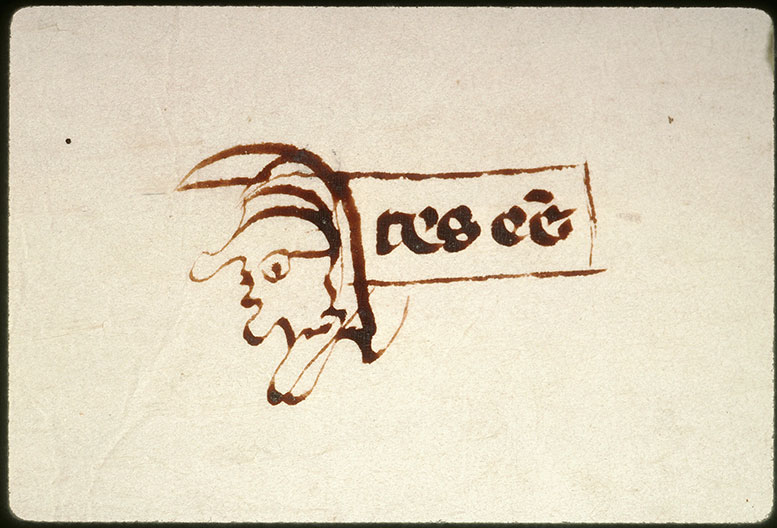 tes eē